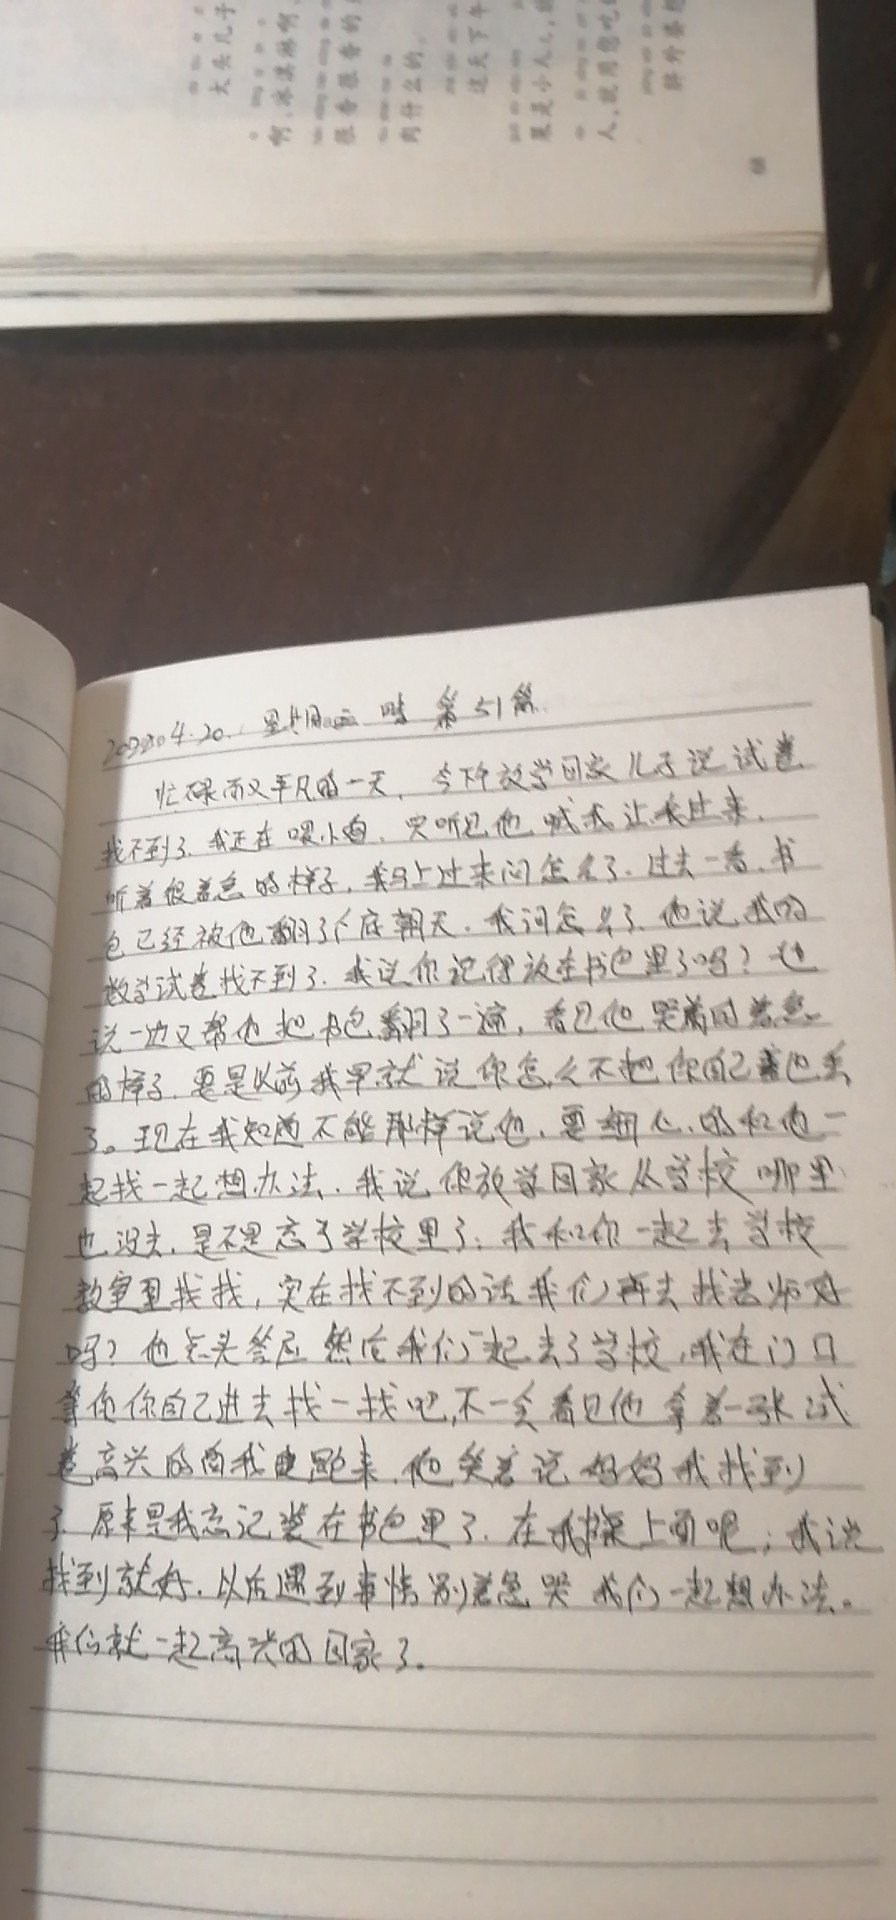 大头儿子
啊,冰淇淋啊,
很香很香的
肉什么的,
这天下午
果是小人人,
人,就用您吃
胖外婆
2022.4.20. 星期三 晴 第51篇
忙碌而又平凡的一天, 今下午放学回家儿子说试卷
找不到了. 我正在喂小 只听见他喊我让我过来.
听着很着急的样子. 我马上过来问怎么了. 过去一看. 书
包已经被他翻了个底朝天. 我问怎么了. 他说我的
数学试卷找不到了. 我说你记得放在书包里了吗? 边
说一边又帮他把书包翻了一遍, 看见他哭着的着急
的样子. 要是以前我早就说你怎么不把你自己 也丢
了。现在我知道不能那样说他. 要细心的和他一
起找一起想办法. 我说你放学回家从学校哪里
也没去. 是不是忘了学校里了. 我和你一起去学校
教室里找找, 实在找不到的话我们再去找老师好
吗? 他点头答应 然后我们一起去了学校, 我在门口
等你你自己进去找一找吧, 不一会看见他拿着一张试
卷高兴的向我 跑来. 他笑着说妈妈我找到
了. 原来是我忘记装在书包里了. 在我 桌上面呢; 我说
找到就好. 以后遇到事情别着急哭 我们一起想办法。
我们就一起高兴的回家了。